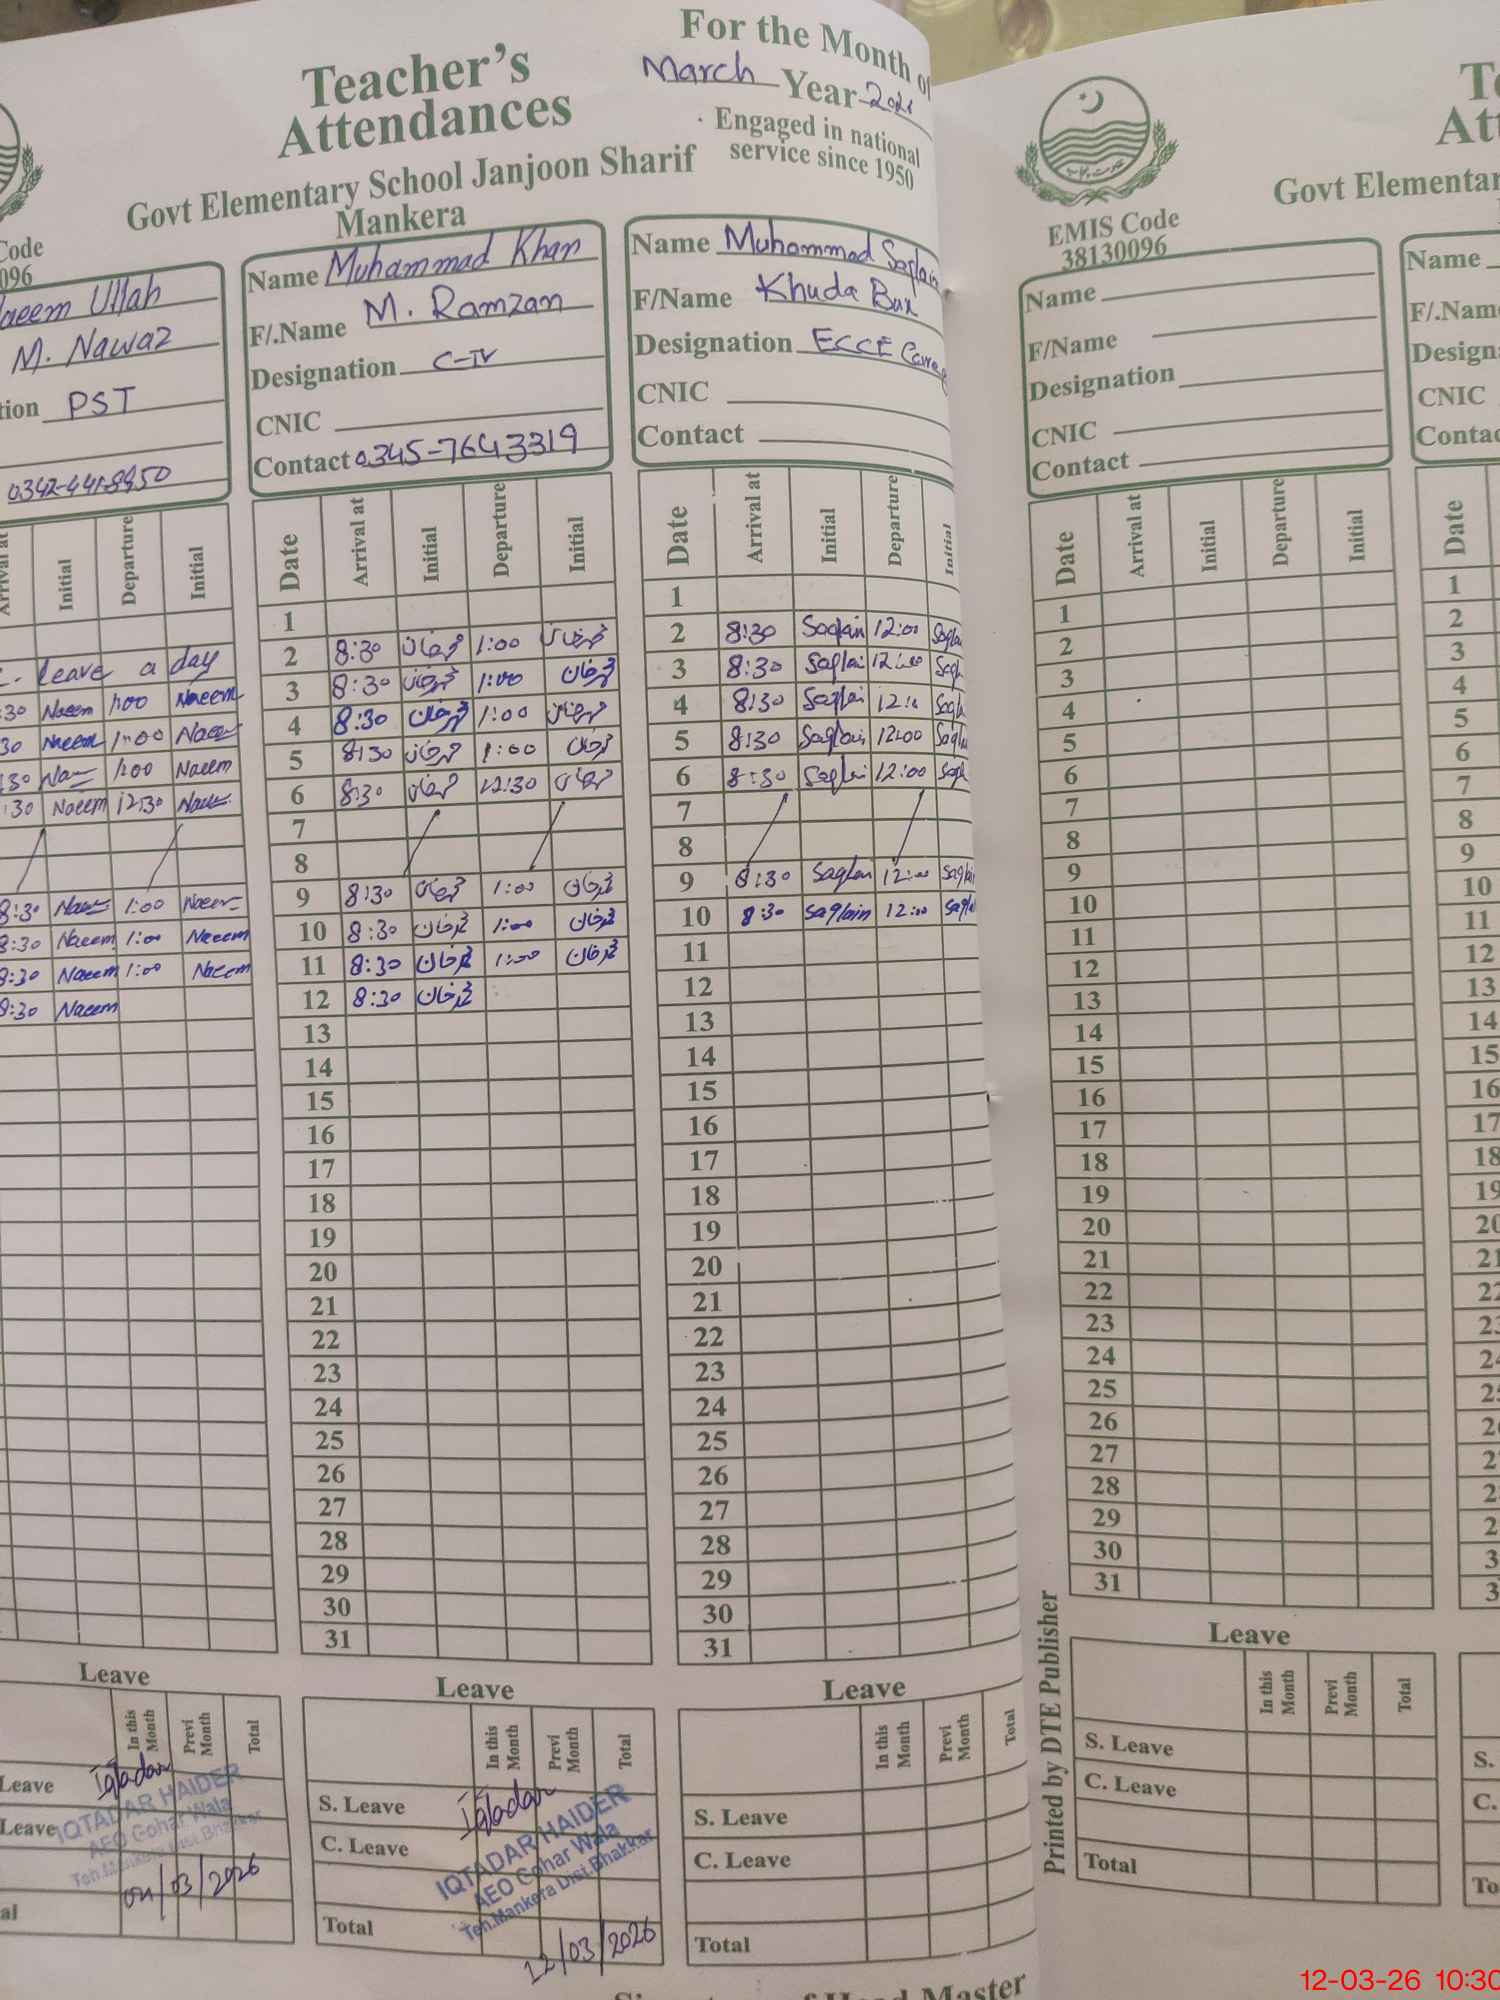 Teacher's
Attendances
For the Month of
March Year
Engaged in national
service since 1950
Govt Elementary School Janjoon Sharif
Mankera
Code
096
Naeem Ullah
M. Nawaz
tion PST
0342-4418950
Name Muhammad Khan
F/.Name M. Ramzan
Designation C-IV
CNIC
Contact 0345-7643319
Name Muhammad Saqlain
F/Name Khuda Bux
Designation ECCE
CNIC
Contact
Arrival at Initial Departure Initial
C. leave a day
:30 Naeem 1:00 Naeem
30 Naeem 1:00 Naeem
:30 Naeem 1:00 Naeem
:30 Naeem 12:30 Naeem
8:30 Naeem 1:00 Naeem
8:30 Naeem 1:00 Naeem
8:30 Naeem 1:00 Naeem
8:30 Naeem
Date Arrival at Initial Departure Initial
1
2 8:30 محمدخان 1:00 محمدخان
3 8:30 محمدخان 1:00 محمدخان
4 8:30 محمدخان 1:00 محمدخان
5 8:30 محمدخان 1:00 محمدخان
6 8:30 محمدخان 12:30 محمدخان
7
8
9 8:30 محمدخان 1:00 محمدخان
10 8:30 محمدخان 1:00 محمدخان
11 8:30 محمدخان 1:00 محمدخان
12 8:30 محمدخان
13
14
15
16
17
18
19
20
21
22
23
24
25
26
27
28
29
30
31
Date Arrival at Initial Departure Initial
1
2 8:30 Saqlain 12:00 Saqla
3 8:30 Saqlain 12:00 Saql
4 8:30 Saqlain 12:00 Saqla
5 8:30 Saqlain 12:00 Saqla
6 8:30 Saqlain 12:00 Saql
7
8
9 8:30 Saqlain 12:00 Saqlai
10 8:30 Saqlain 12:00 Saqla
11
12
13
14
15
16
17
18
19
20
21
22
23
24
25
26
27
28
29
30
31
Leave
In this Month Previ Month Total
Leave
Leave
al
Iqtadar
IQTADAR HAIDER
AEO Gohar Wala
Teh.Mankera Dist.Bhakkar
04/03/2026
Leave
In this Month Previ Month Total
S. Leave
C. Leave
Total
Iqtadar
IQTADAR HAIDER
AEO Gohar Wala
Teh.Mankera Dist.Bhakkar
12/03/2026
Leave
In this Month Previ Month Total
S. Leave
C. Leave
Total
Head Master
EMIS Code
38130096
Govt Elementar
Name
F/Name
Designation
CNIC
Contact
Date Arrival at Initial Departure Initial
1
2
3
4
5
6
7
8
9
10
11
12
13
14
15
16
17
18
19
20
21
22
23
24
25
26
27
28
29
30
31
Leave
In this Month Previ Month Total
S. Leave
C. Leave
Total
Printed by DTE Publisher
Te
Att
Name
F/.Nam
Design
CNIC
Contac
Date
1
2
3
4
5
6
7
8
9
10
11
12
13
14
15
16
17
18
19
20
21
22
23
24
S.
C.
To
12-03-26 10:30